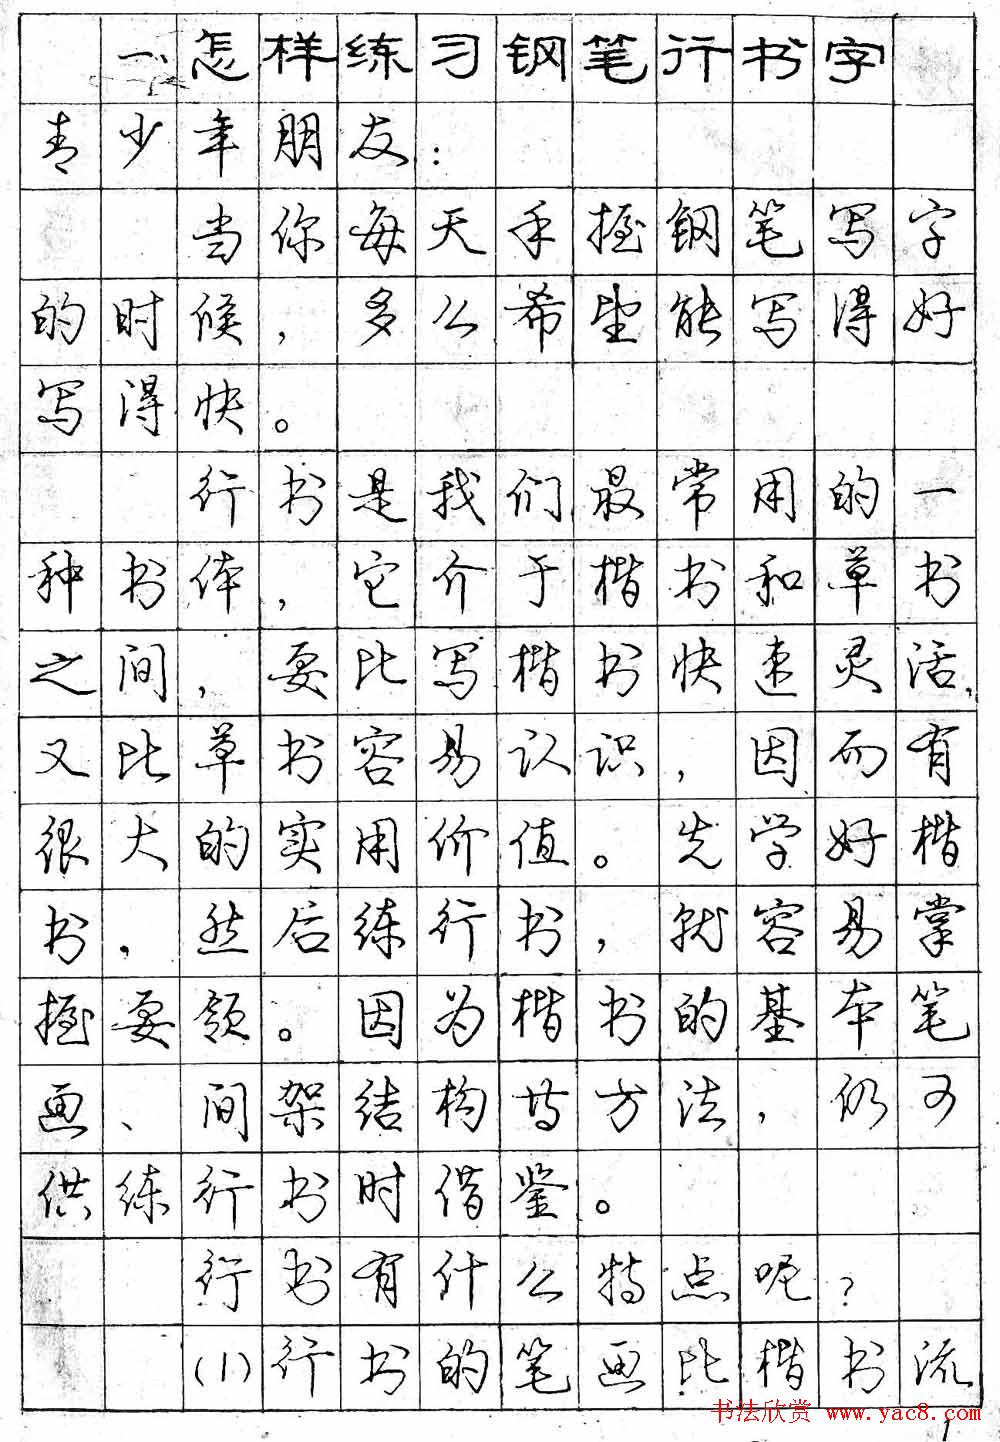 一、怎样练习钢笔行书字
青少年朋友:
当你每天手握钢笔写字
的时候,多么希望能写得好
写得快。
行书是我们最常用的一
种书体,它介于楷书和草书
之间,要比写楷书快速灵活,
又比草书容易认识,因而有
很大的实用价值。先学好楷
书,然后练行书,就容易掌
握要领。因为楷书的基本笔
画、间架结构等方法,仍可
供练行书时借鉴。
行书有什么特点呢?
(1)行书的笔画比楷书流
书法欣赏 www.yac8.com
1